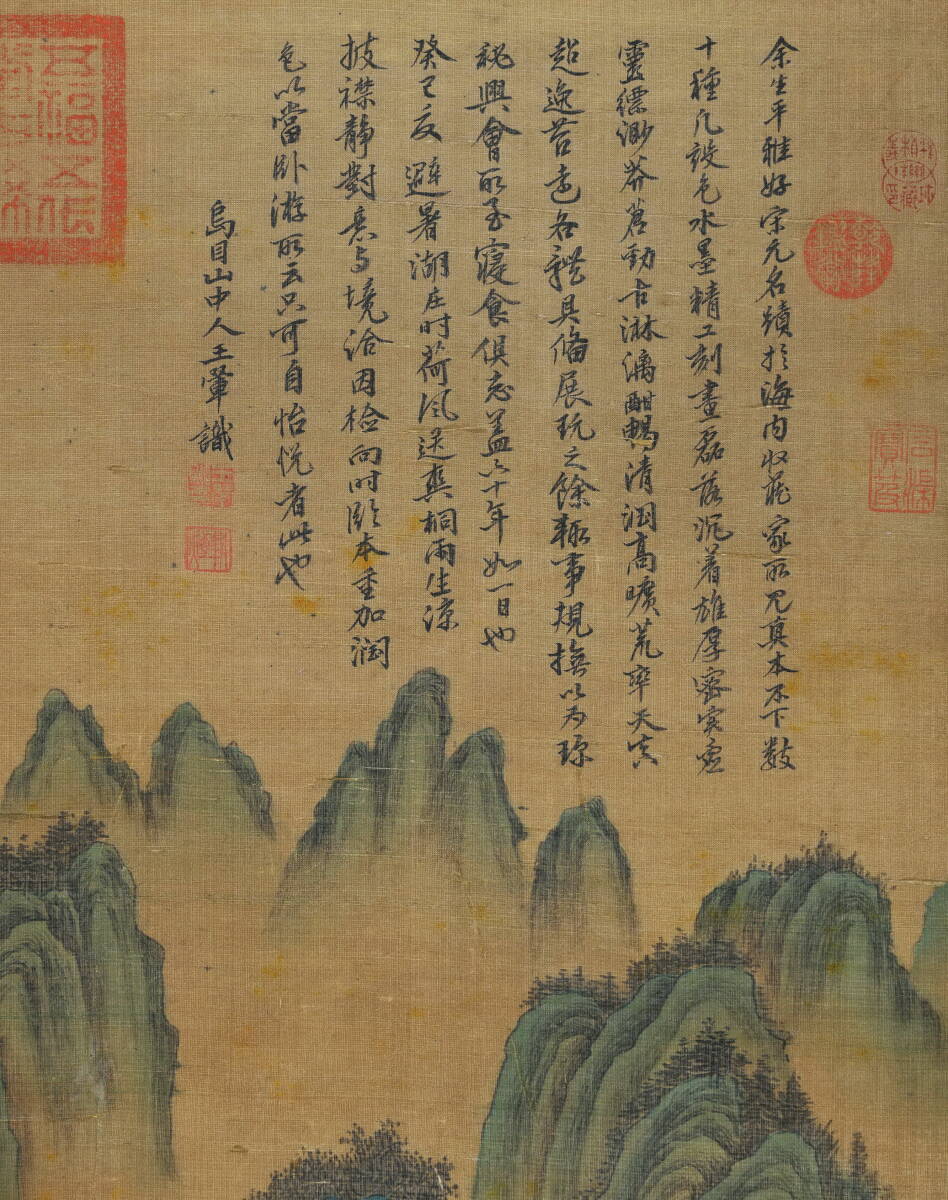 余生平雅好宋元名蹟於海内收藏家所見真本不下數
十種凡設色水墨精工刻畫磊落沉着雄厚密實虛
靈縹渺莽蒼勁古淋漓酣暢清潤高曠荒率天真
超逸苔老各體具備展玩之餘輒事規撫以為珍
秘興會所至寢食俱忘蓋六十年如一日也
癸巳夏避暑湖庄時荷風送爽桐雨生涼
披襟静對意與境洽因檢向時臨本重加潤
色以當卧游所云只可自怡悅者此也
烏目山中人王翬識
五福五代